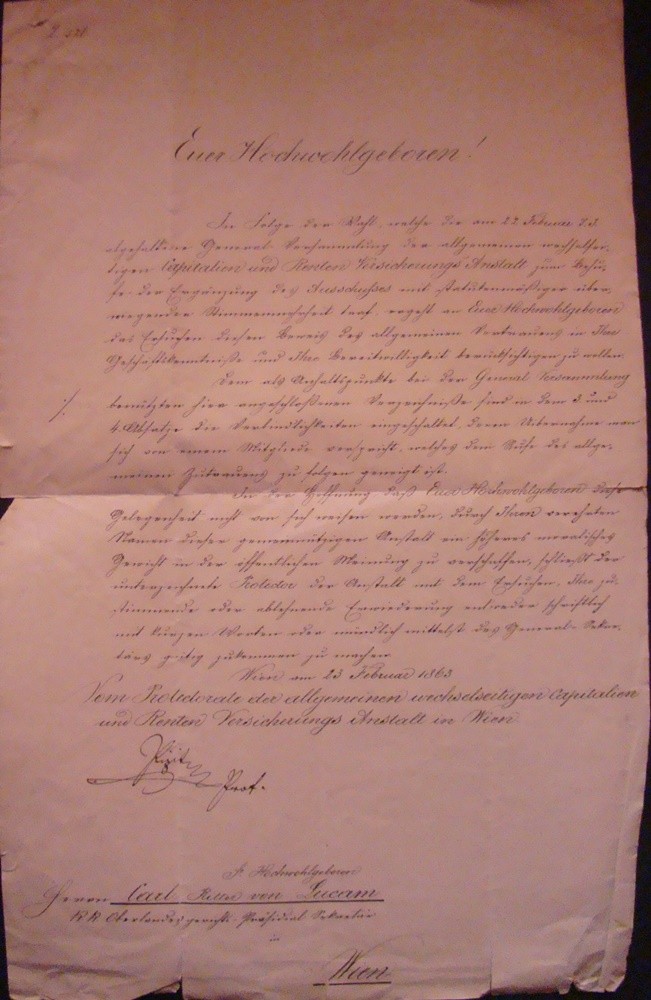 Euer Hochwohlgeboren!
In Folge der Wahl, welche die am 22 Februar d. J.
abgehaltene General-Versammlung der allgemeinen wechselsei-
tigen Capitalien und Renten Versicherungs Anstalt zum Behu-
fe der Ergänzung des Ausschußes mit statutenmäßiger über-
wiegender Stimmenmehrheit traf, ergeht an Euer Hochwohlgeboren
das Ersuchen diesen Beweis des allgemeinen Vertrauens in Ihre
Geschäftskenntniße und Ihre Bereitwilligkeit berücksichtigen zu wollen.
Dem als Anhaltspunkte bei der General Versammlung
benützten hier angeschloßenen Verzeichniße sind in dem 3 und
4 Absatze die Verbindlichkeiten eingeschaltet, deren Übernahme man
sich von einem Mitgliede verspricht, welches dem Rufe des allge-
meinen Zutrauens zu folgen geneigt ist.
In der Hoffnung daß Euer Hochwohlgeboren diese
Gelegenheit nicht von sich weisen werden, durch Ihren verehrten
Namen dieser gemeinnützigen Anstalt ein höheres moralisches
Gewicht in der öffentlichen Meinung zu verschaffen, schließt der
unterzeichnete Protector der Anstalt mit dem Ersuchen, Ihre zu-
stimmende oder ablehnende Erwiederung entweder schriftlich
mit kurzen Worten oder mündlich mittelst des General-Sekre-
tärs gütig zukommen zu machen.
Wien am 23 Februar 1863
Vom Protectorate der allgemeinen wechselseitigen Capitalien
und Renten Versicherungs Anstalt in Wien
Prot.
Hochwohlgeboren
Herrn Carl Ritter von Lucam
KK Oberlandesgerichts-Präsidial Sekretär
in
Wien